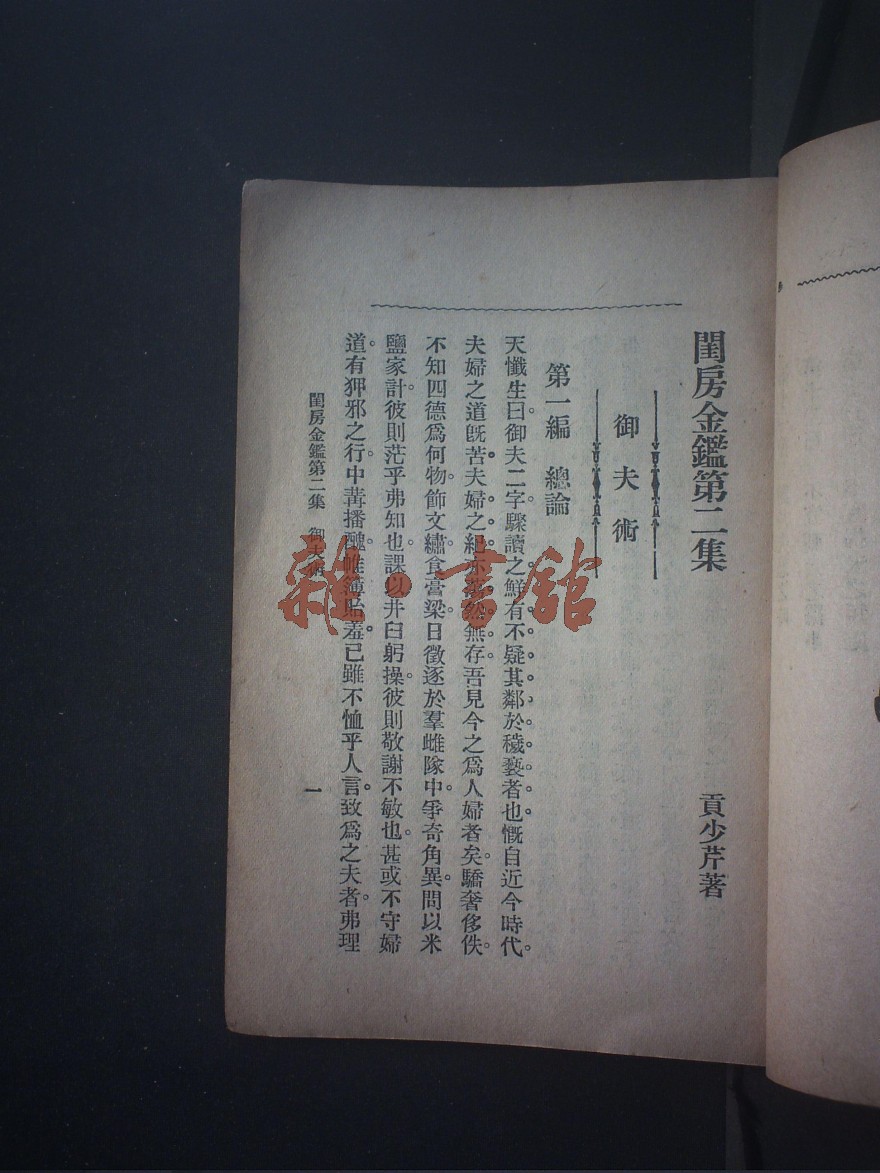 閨房金鑑第二集
貢少芹著
御夫術
第一編 總論
天懺生曰。御夫二字。驟讀之。鮮有不疑其鄰於穢褻者也。慨自近今時代。
夫婦之道既苦。夫婦之紀亦蕩然無存。吾見今之爲人婦者矣。驕奢侈佚。
不知四德爲何物。飾文繡。食膏粱。日徵逐於羣雌隊中。爭奇角異。問以米
鹽家計。彼則茫乎弗知也。課以井臼躬操。彼則敬謝不敏也。甚或不守婦
道。有狎邪之行。中冓播醜。帷薄貽羞。已雖不恤乎人言。致爲之夫者。弗理
閨房金鑑第二集 御夫術
一
雜·書館